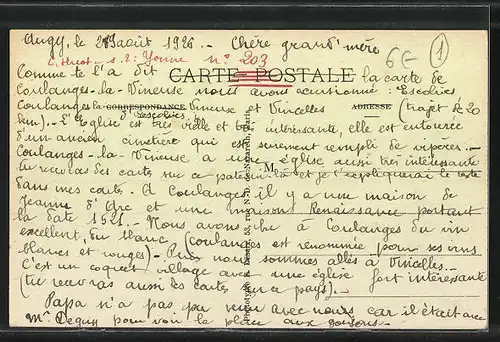 Augy, le 29 août 1926.- Chère grand'mère
6€ 1
C. Huot - s. 2: Yonne n° 203
Comme te l'a dit la carte de
CARTE POSTALE
Coulanges-la-Vineuse nous avons excursionné: Escolives
Coulanges-la-Vineuse et Vincelles (trajet de 20
CORRESPONDANCE
ADRESSE
km).- L'Eglise d'Escolives est très vieille et très intéressante, elle est entourée
d'un ancien cimetière qui est sûrement rempli de vipères.-
Coulanges-la-Vineuse a une église aussi très intéressante
M
tu verras des cartes sur ce pays là et je t'expliquerai le reste
dans mes cartes. A Coulanges il y a une maison de
Jeanne d'Arc et une maison Renaissance portant
la date 1521.- Nous avons bu à Coulanges du vin
excellent, du blanc (Coulanges est renommée pour ses vins
blancs et rouges)- Puis nous sommes allés à Vincelles.-
C'est un coquet village avec une église fort intéressante
(tu recevras aussi des cartes sur ce pays).-
Papa n'a pas pu venir avec nous car il était avec
Mr. Deguy pour voir la place aux
rue N.-D. de Nazareth, Paris